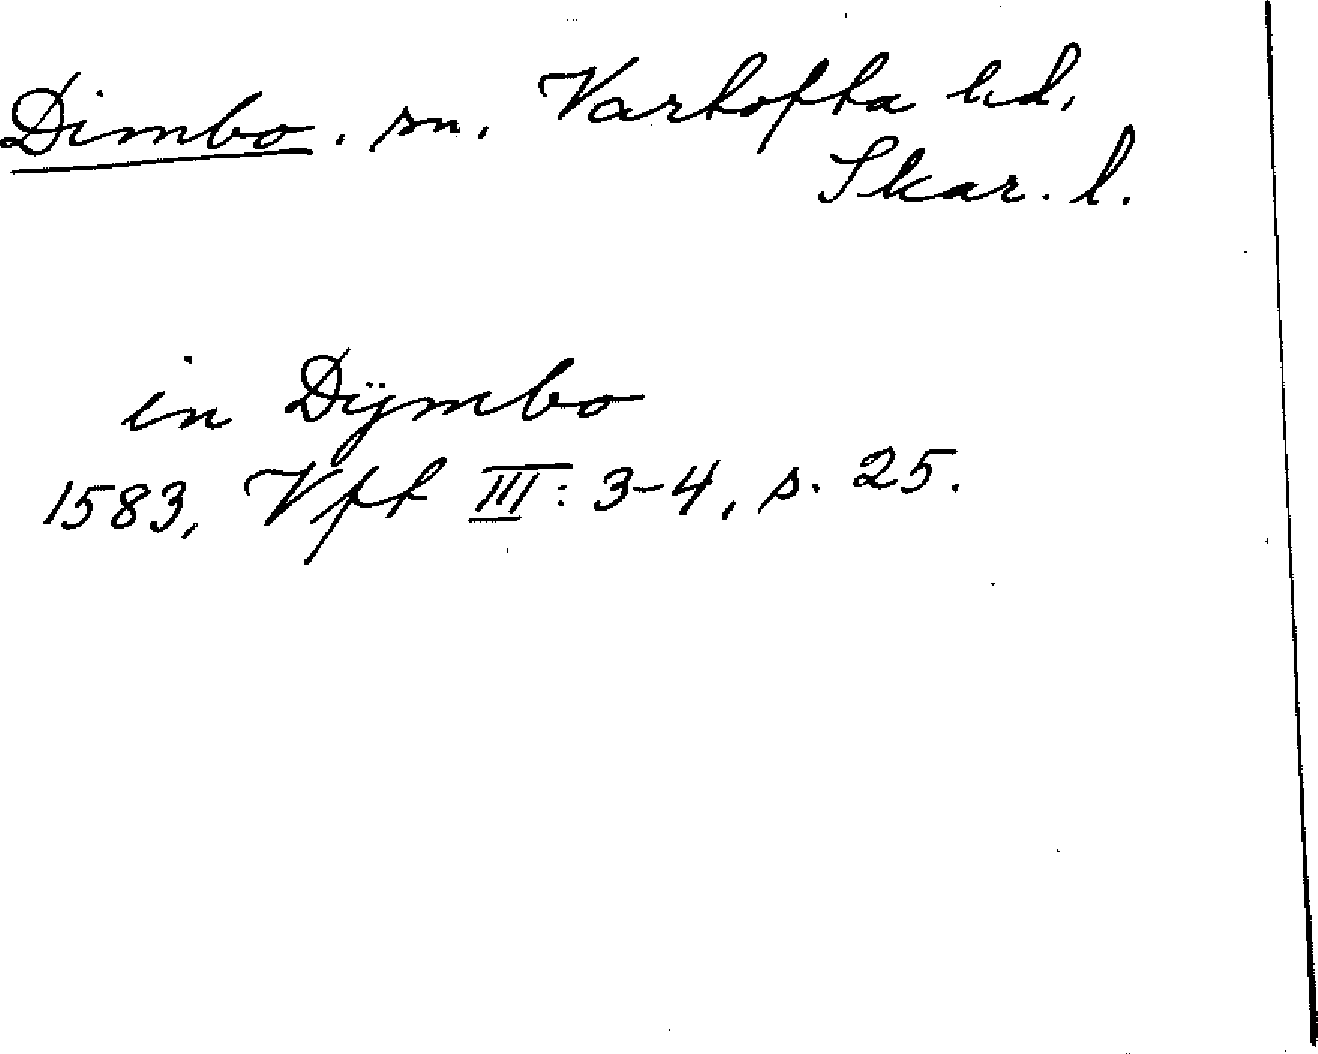 Dimbo. sn. Vartofta hd,
Skar. l.
in Dÿmbo
1583, Vft III: 3-4, s. 25.